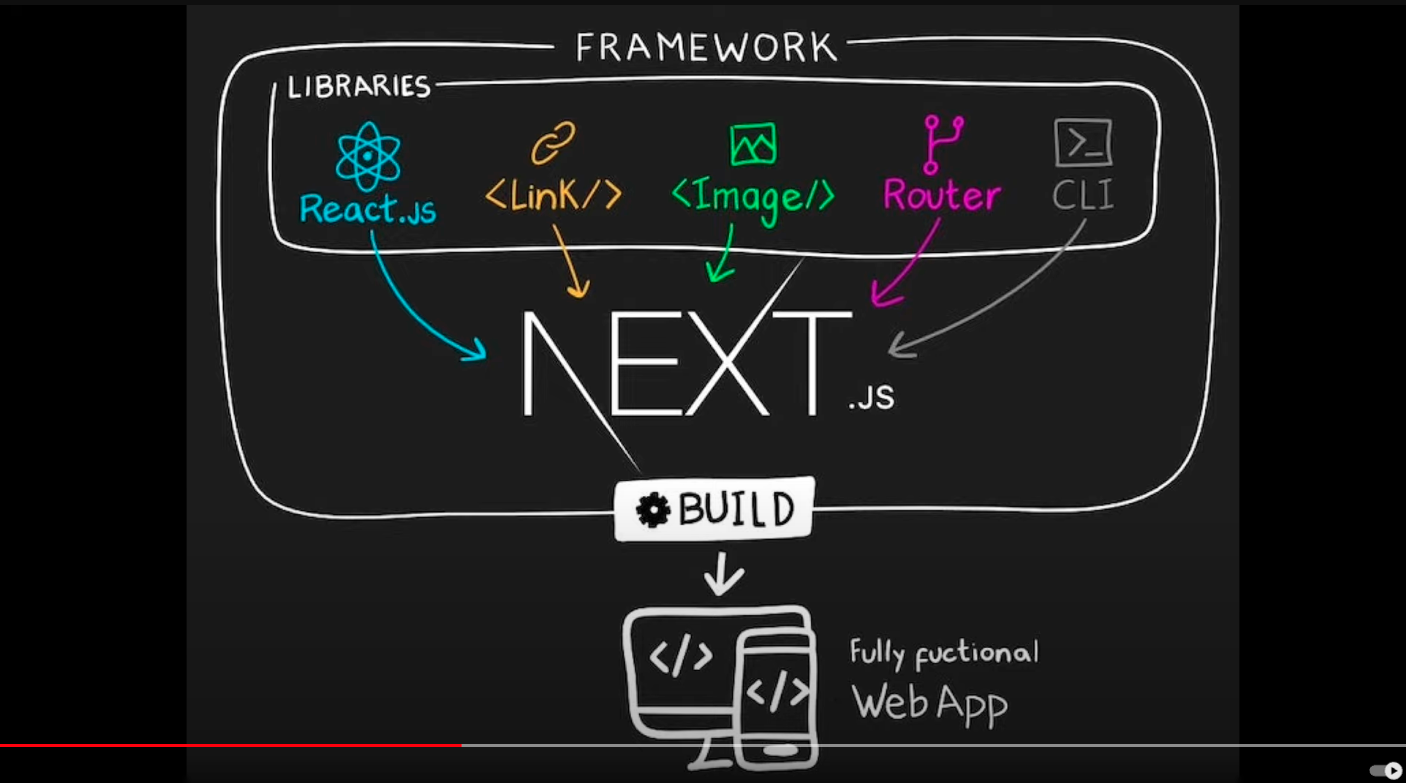 FRAMEWORK
LIBRARIES
React.JS
<LinK/>
<Image/>
Router
CLI
NEXT.JS
BUILD
</>
</>
Fully fuctional
Web App